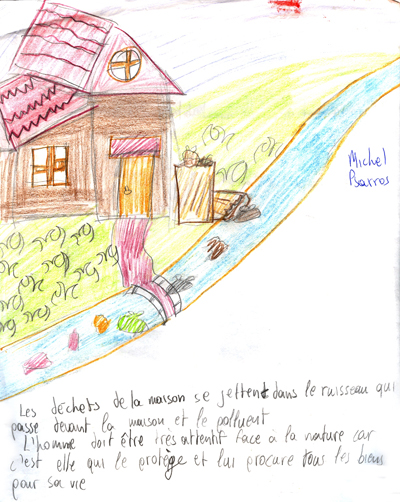 Michel
Barros
Les déchets de la maison se jettent dans le ruisseau qui
passe devant la maison et le polluent
L'homme doit être très attentif face à la nature car
c'est elle qui le protège et lui procure tous les biens
pour sa vie